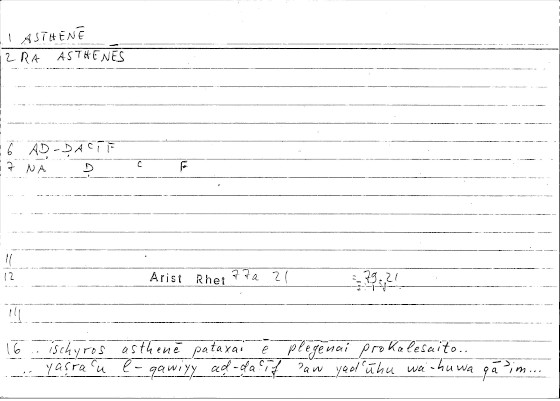 1 ASTHENĒ
2 RA ASTHENĒS
6 AḌ-ḌAʿĪF
7 NA Ḍ ʿ F
11
12 Arist Rhet 77a 21 = 79,21
14
16 .. ischyros asthenē pataxai ē plēgēnai prokalesaito..
.. yaṣraʿu l-qawiyy aḍ-ḍaʿīf ʾaw yadʿūhu wa-huwa qāʾim...